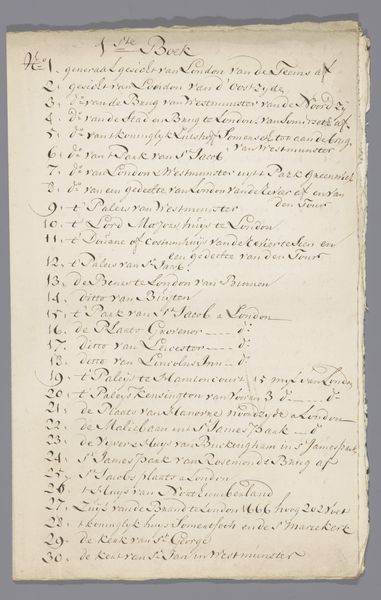 1ste Boek
No
1. generaal gesicht van London van de Teems af
2. gesicht van London van d'Oostzyde
3. do van de Brug van Westmunster van de Noord Zy
4. do van de Stad en Brug te London van Somerset af
5. do van 't konunglyk Lusthoff Somerset tot aan de brug
van Westmunster
6. do van 't Park van St Jacob
7. do van London Westmunster uyt 't Park Greenwich
8. do van een gedeelte van London van de Rivier af en van
den Tour
9. t' Paleis van Westmunster
10. t' Lord Mayors huys te London
11. t' Douane of Costumhuys van de Rivier te sien en
een gedeelte van den Tour
12. t' Paleis van St Jacob
13. de Beurs te London van Binnen
14. ditto van Buyten
15. t' Park van St Jacob a London
16. de Plaats Grosvenor do
17. ditto van Leicester do
18. ditto van Lincolns Inn do
19. t' Paleys te Hamtoncourt 15 myl van London
20. t' Paleys Kensington van Voren 3 do do
21. de Plaats van Hanover noordzyde a London
22. de Maliebaan in St James Park do
23. de Vyver Huys van Buckingham in St James Park
24. St James Park van Rosemonds Brug af
25. St Jacobs plaats a London
26. t Huys van Nortumberland
27. Zuyl van de Brand te London 1666 hoog 202 Voet
28. t konunglyk huys Somentsoch en de St Marie kerk
29. de kerk van St George
30. de kerk van St Jan in Westmunster